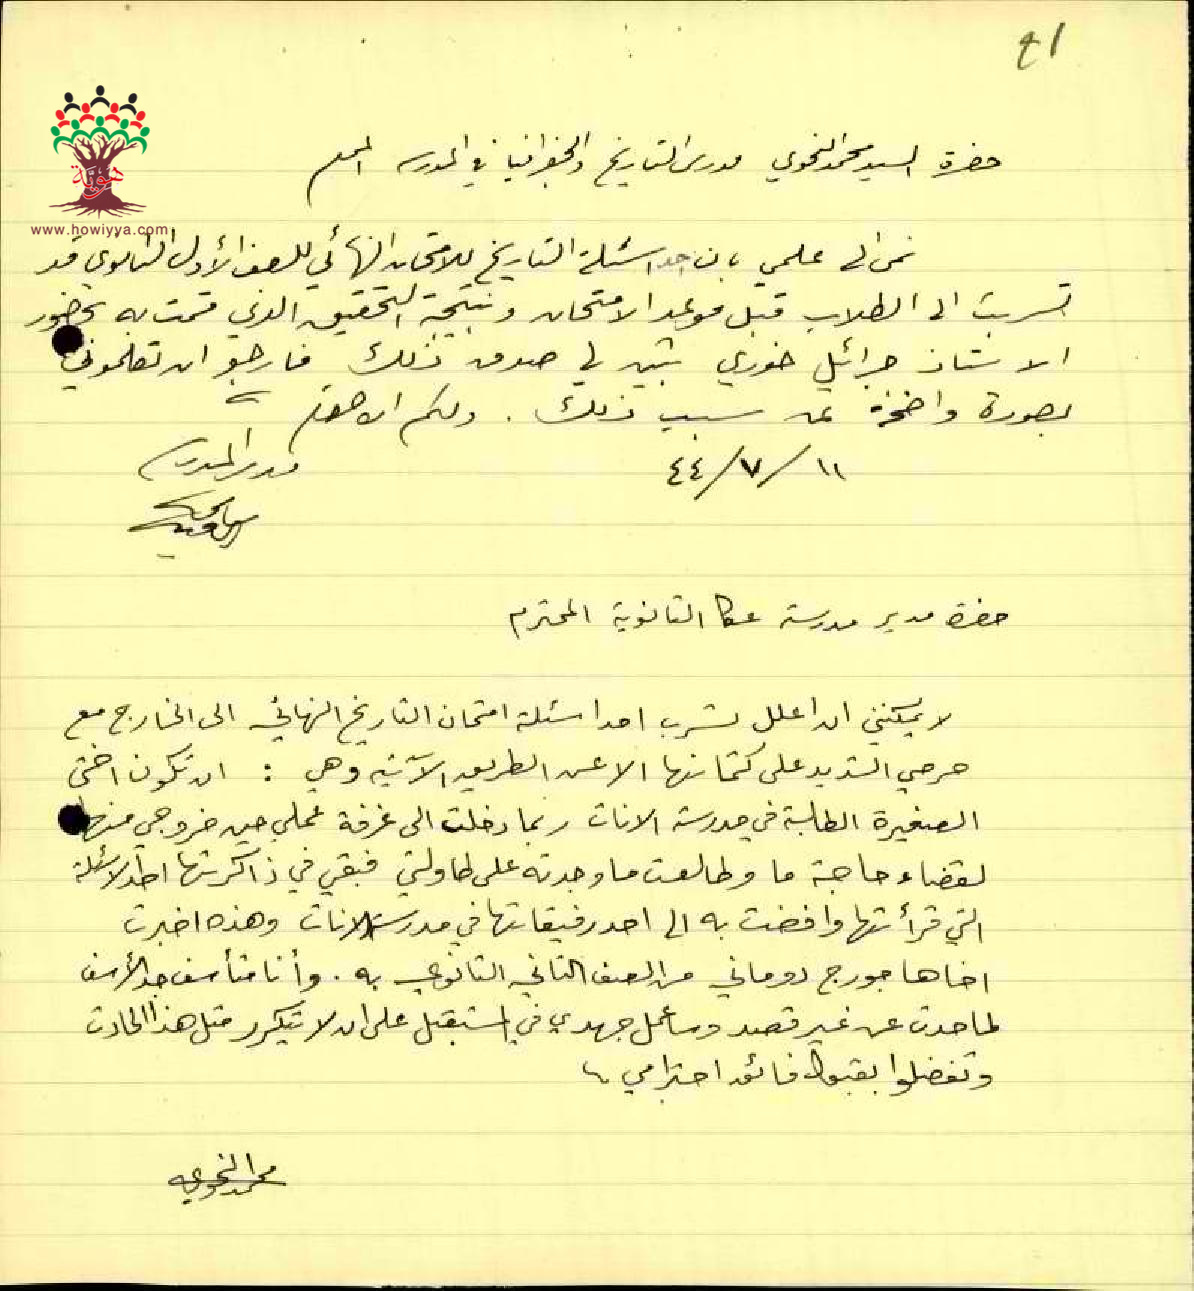 ع ١
هوية
www.howiyya.com
حضرة السيد محمد النحوي مدرس التاريخ والجغرافيا في المدرسه المحترم
نمى الى علمي بان احد اسئلة التاريخ للامتحان النهائي للصف الأول الثانوي قد
تسربت الى الطلاب قبل موعد الامتحان ونتيجة التحقيق الذي قمت به بحضور
الاستاذ جبرائيل خوري تبين لي صدق ذلك فارجو ان تعلموني
بصورة واضحة عن سبب ذلك . ولكم الاحترام
١١/٧/٤٤
مدير المدرسه
حضرة مدير مدرسة عكا الثانوية المحترم
لا يمكنني ان اعلل تسرب احد اسئلة امتحان التاريخ النهائي الى الخارج مع
حرصي الشديد على كتمانها الا عن الطريق الآتيه وهي : ان تكون اختي
الصغيرة الطالبة في مدرسة الاناث ربما دخلت الى غرفة عملي حين خروجي منها
لقضاء حاجة ما وطالعت ما وجدته على طاولتي فبقي في ذاكرتها احد الاسئلة
التي قرأتها وافضت به الى احد رفيقاتها في مدرسة الاناث وهذه اخبرت
اخاها جورج دوماني من الصف الثاني الثانوي به . وأنا متأسف جد الأسف
لما حدث عن غير قصد وساعمل جهدي في المستقبل على ان لا يتكرر مثل هذا الحادث
وتفضلوا بقبول فائق احترامي
محمد النحوي